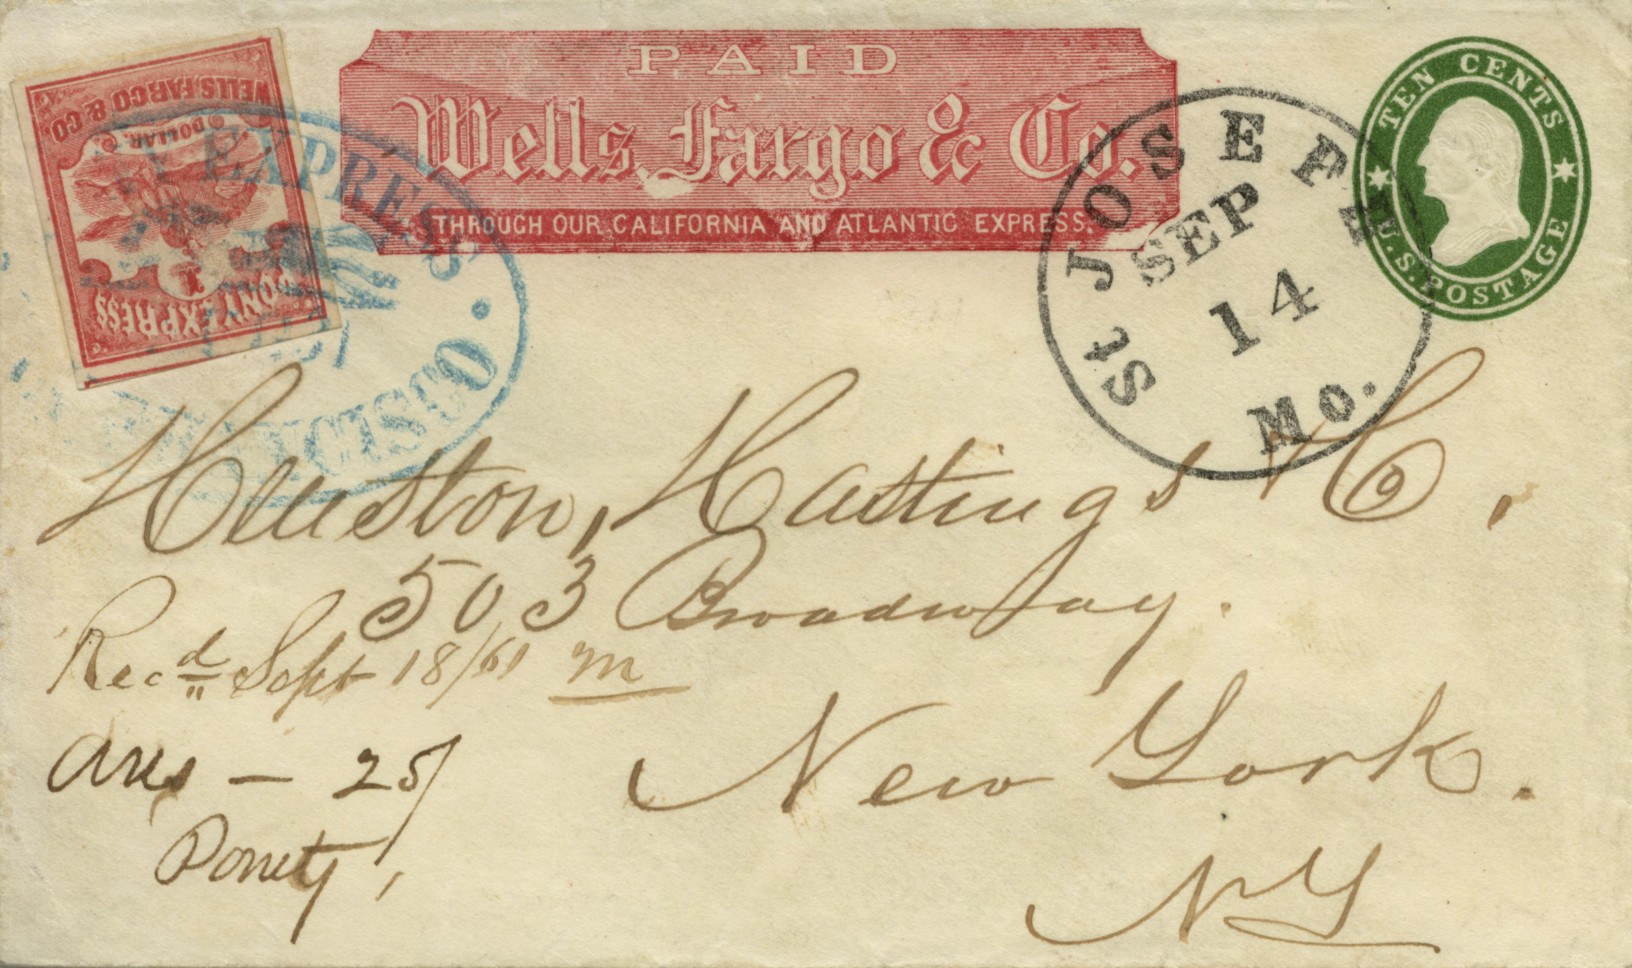 PAID
Wells, Fargo & Co.
THROUGH OUR CALIFORNIA AND ATLANTIC EXPRESS.
WELLS, FARGO & CO
DOLLAR.
1
PONY EXPRESS
EXPRESS.
FRANCISCO
St JOSEPH
SEP
14
Mo.
TEN CENTS
U.S. POSTAGE
Hueston, Hastings & Co,
503 Broadway.
Recd Sept 18/61 m
New York.
N Y
Ans - 25/